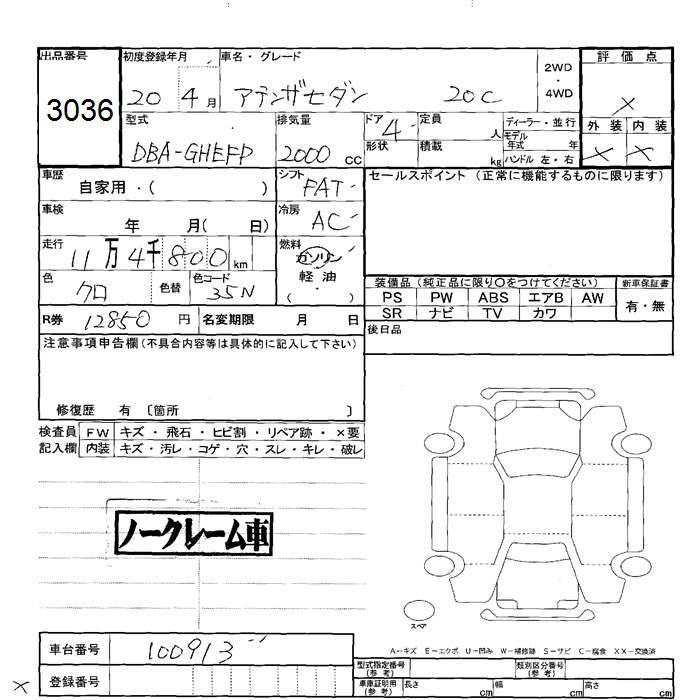 出品番号 初度登録年月 車名・グレード 2WD・4WD 評価点
3036 20 4月 アテンザセダン 20C ×
型式 排気量 ドア 定員 ディーラー・並行 外装 内装
DBA-GHEFP 2000 cc 4 人 モデル年式 年
形状 積載 kg ハンドル 左・右 × ×
車歴 自家用・( ) シフト FAT セールスポイント (正常に機能するものに限ります)
車検 年 月( 日) 冷房 AC
走行 11万4千800km 燃料 ガソリン・軽油・( )
色 クロ 色替 色コード 35N
装備品 (純正品に限り○をつけてください) 新車保証書
PS PW ABS エアB AW 有・無
SR ナビ TV カワ
R券 12850円 名変期限 月 日 後日品
注意事項申告欄(不具合内容等は具体的に記入して下さい)
修復歴 有 〔箇所 〕
検査員 FW キズ・飛石・ヒビ割・リペア跡・×要
記入欄 内装 キズ・汚レ・コゲ・穴・スレ・キレ・破レ
ノークレーム車
スペア
A-キズ E-エクボ U-凹み W-補修跡 S-サビ C-腐食 XX-交換済
車台番号 100913
型式指定番号(参考) 類別区分番号(参考)
× 登録番号
車庫証明用(参考) 長さ cm 幅 cm 高さ cm